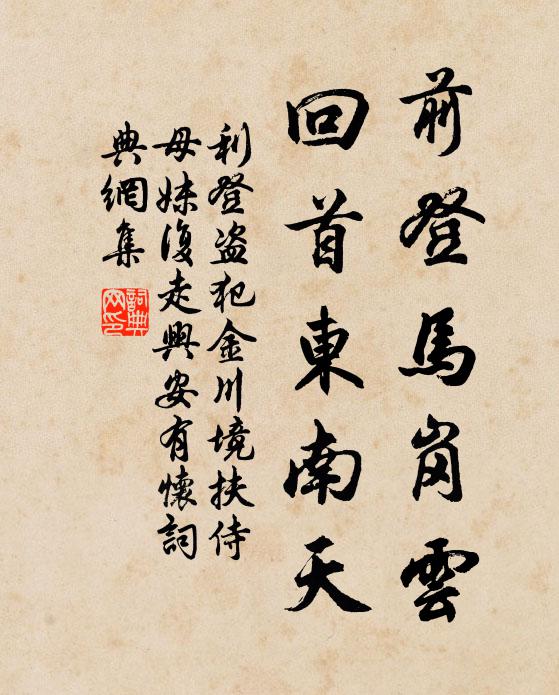 前登馬崗雲
回首東南天
利登盗犯金川境扶侍
母妹復走興安有懷詞
典網集
詞典
网印